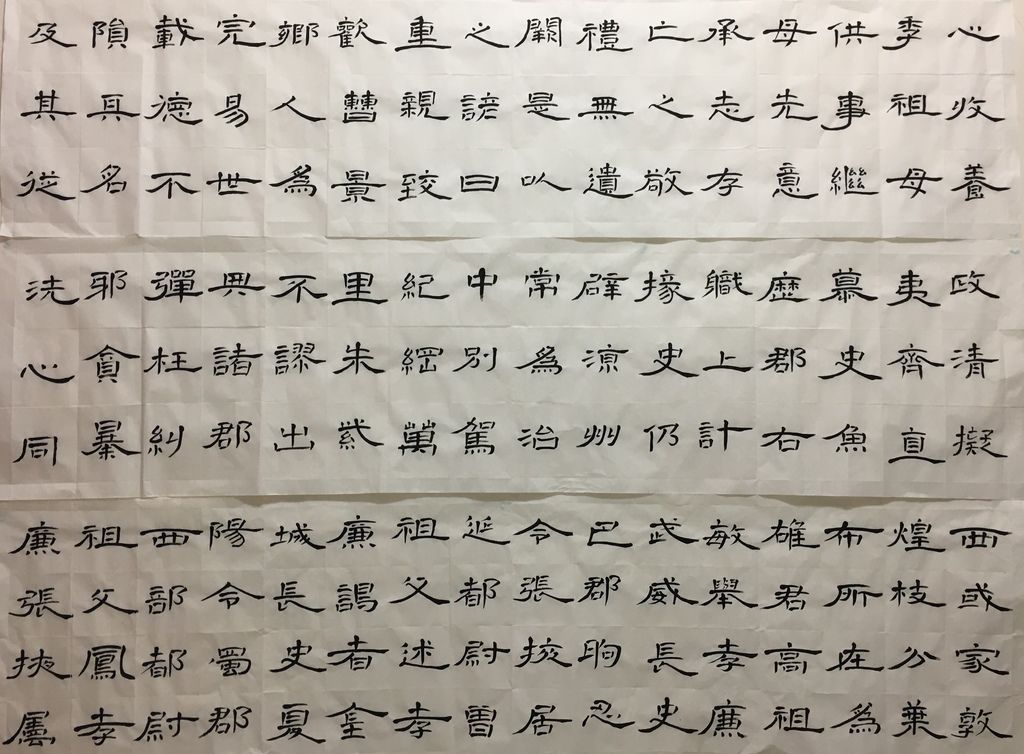 心收養
季祖母
供事繼
母先意
承志存
亡之敬
禮無遺
闕是以
之諺曰
重親致
歡曹景
鄉人為
完易世
載德不
隕其名
及其從
政清擬
夷齊直
慕史魚
歷郡右
職上計
掾史仍
辟涼州
常為治
中別駕
紀綱萬
里朱紫
不謬出
典諸郡
彈枉糾
邪貪暴
洗心同
西或家敦
煌枝分葉
布所在為
雄君高祖
敏舉孝廉
武威長史
巴郡朐忍
令張掖居
延都尉曾
祖父述孝
廉謁者金
城長史夏
陽令蜀郡
西部都尉
祖父鳳孝
廉張掖屬